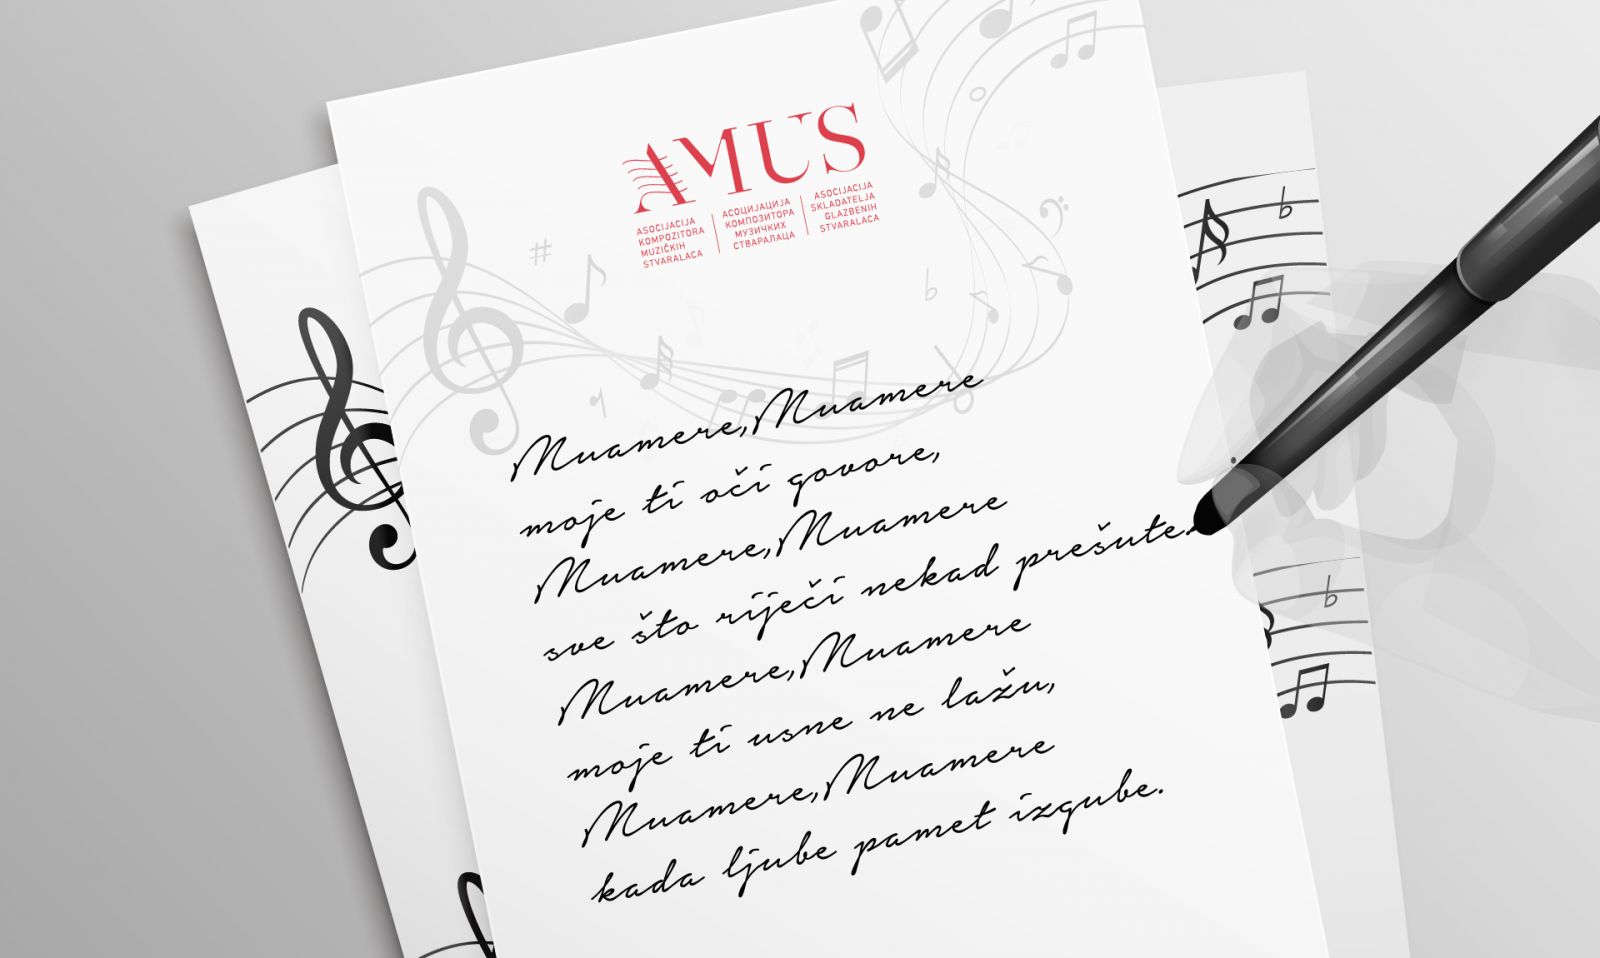 AMUS
ASOCIJACIJA
KOMPOZITORA
MUZIČKIH
STVARALACA
АСОЦИЈАЦИЈА
КОМПОЗИТОРА
МУЗИЧКИХ
СТВАРАЛАЦА
ASOCIJACIJA
SKLADATELJA
GLAZBENIH
STVARALACA
Muamere, Muamere
moje ti oči govore,
Muamere, Muamere
sve što riječi nekad prešute.
Muamere, Muamere
moje ti usne ne lažu,
Muamere, Muamere
kada ljube pamet izgube.